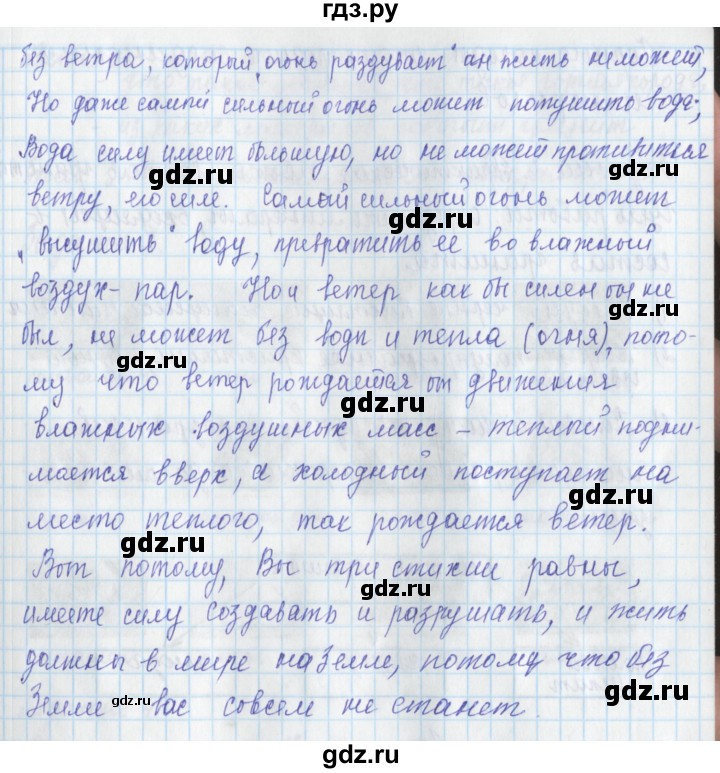 гдз.ру
без ветра, который „огонь раздувает" он жить не может,
gdz.ru
Но даже самый сильный огонь может потушить вода;
Вода силу имеет большую, но не может противиться
gdz.ru
ветру, его силе. Самый сильный огонь может
gdz.ru
„высушить" воду, превратить ее во влажный
gdz.ru
воздух - пар. Но и ветер как бы силен он не
gdz.ru
был, не может без воды и тепла (огня), пото-
му что ветер рождается от движения
gdz.ru
влажных воздушных масс - теплый подни-
мается вверх, а холодный поступает на
gdz.ru
место теплого, так рождается ветер.
gdz.ru
Вот потому, Вы три стихии равны,
gdz.ru
имеете силу создавать и разрушать, и жить
должны в мире на Земле, потому что без
Земли вас совсем не станет.
gdz.ru
gdz.ru
gdz.ru